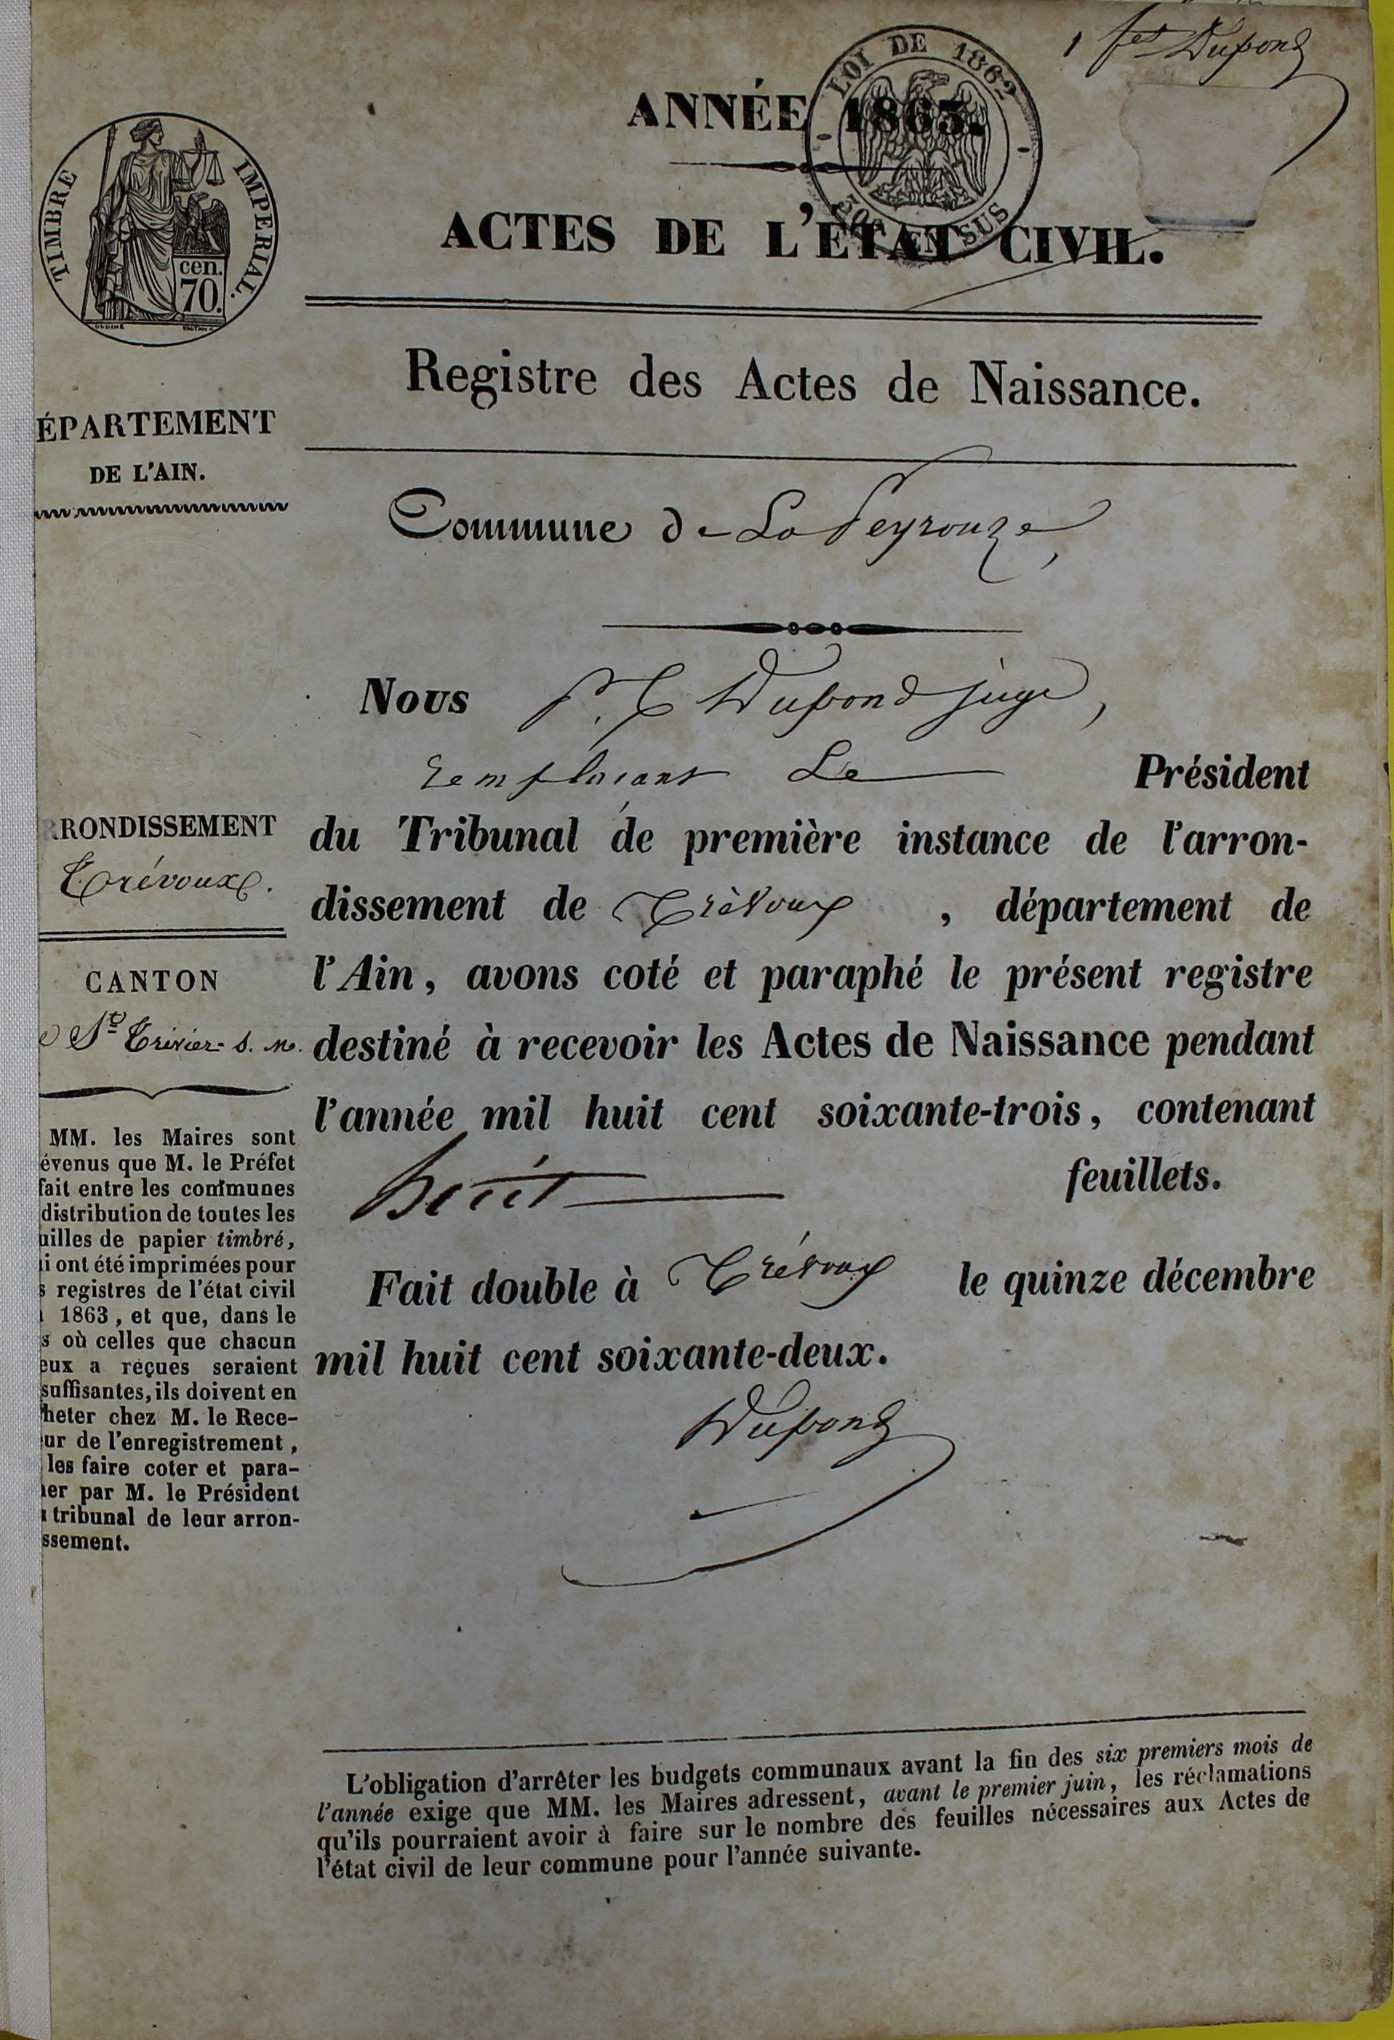 1 fet Dupond
LOI DE 1862
50c EN SUS
ANNÉE 1863.
TIMBRE IMPERIAL.
cen.
70.
ACTES DE L'ÉTAT CIVIL.
Registre des Actes de Naissance.
ÉPARTEMENT
DE L'AIN.
Commune de La Peyrouze,
Nous P. C Dupond juge,
remplacant Le Président
du Tribunal de première instance de l'arron-
dissement de Trévoux, département de
l'Ain, avons coté et paraphé le présent registre
destiné à recevoir les Actes de Naissance pendant
l'année mil huit cent soixante-trois, contenant
huit feuillets.
Fait double à Trévoux le quinze décembre
mil huit cent soixante-deux.
Dupond
RRONDISSEMENT
Trévoux.
CANTON
St Trivier s. m.
MM. les Maires sont
évenus que M. le Préfet
fait entre les communes
distribution de toutes les
uilles de papier timbré,
i ont été imprimées pour
s registres de l'état civil
1863, et que, dans le
s où celles que chacun
eux a reçues seraient
suffisantes, ils doivent en
heter chez M. le Rece-
ur de l'enregistrement,
les faire coter et para-
er par M. le Président
tribunal de leur arron-
ssement.
L'obligation d'arrêter les budgets communaux avant la fin des six premiers mois de
l'année exige que MM. les Maires adressent, avant le premier juin, les réclamations
qu'ils pourraient avoir à faire sur le nombre des feuilles nécessaires aux Actes de
l'état civil de leur commune pour l'année suivante.